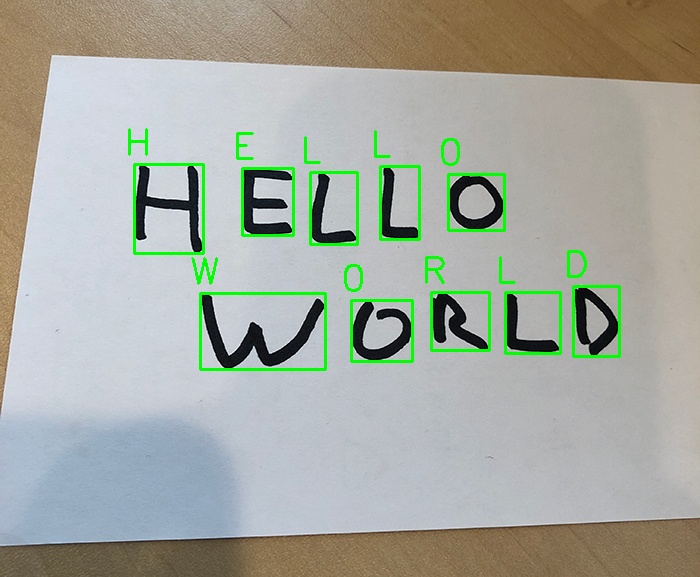 H E L L O
HELLO
W O R L D
WORLD